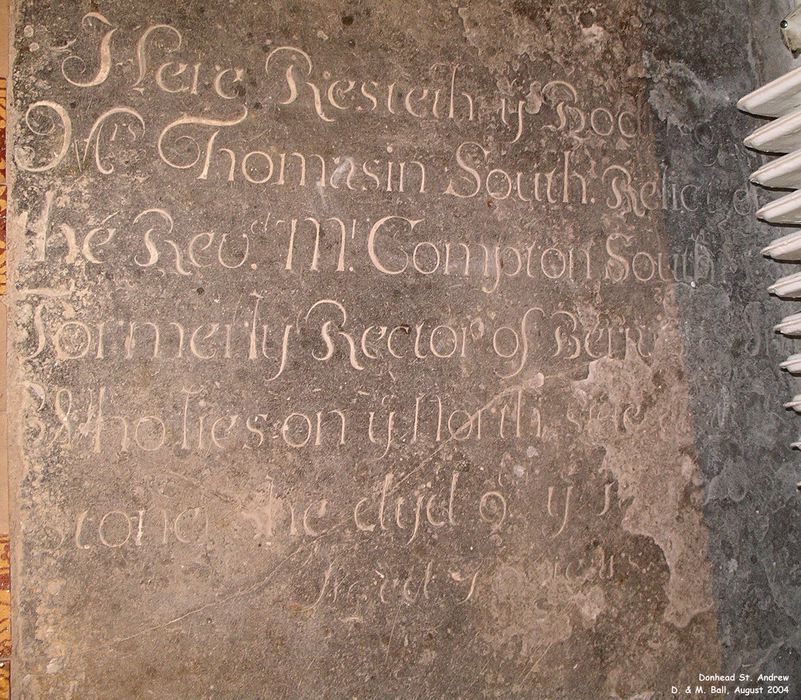 Here Resteth yᵉ Body
Mʳˢ Thomasin South Relict
the Revᵈ. Mʳ. Compton South
Formerly Rector of
Who lies on yᵉ North side
stone she dyd 9 yᵉ

Donhead St. Andrew
D. & M. Ball, August 2004